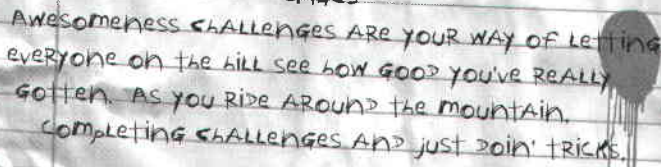 Awesomeness challenges are your way of letting
everyone on the hill see how good you've really
gotten. As you ride around the mountain,
completing challenges and just doin' tricks,